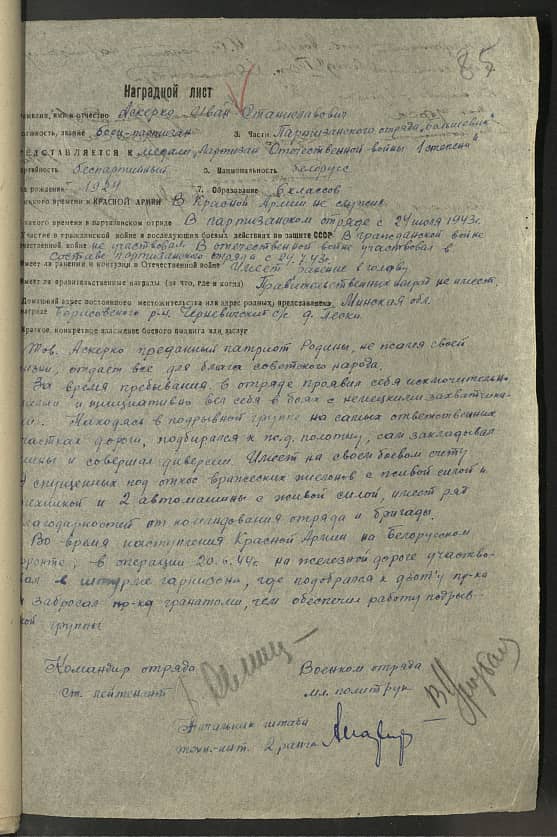 85
Наградной лист
Фамилия, имя и отчество Аскерко Иван Станиславович
должность, звание боец-партизан 3. Часть Партизанского отряда "Большевик"
ПРЕДСТАВЛЯЕТСЯ К медали "Партизан Отечественной войны 1 степени"
партийность беспартийный 5. Национальность белорус
рождения 1924 7. Образование 6 классов
какого времени в КРАСНОЙ АРМИИ В Красной Армии не служил
какого времени в партизанском отряде В партизанском отряде с 24 июля 1943г.
Участие в гражданской войне и последующих боевых действиях по защите СССР В гражданской войне
отечественной войне не участвовал. В отечественной войне участвовал в
составе партизанского отряда с 24.7.43г.
Имеет ли ранения и контузии в Отечественной войне Имеет ранение в голову
Имеет ли правительственные награды (за что, где и когда) Правительственных наград не имеет.
Домашний адрес постоянного местожительства или адрес родных, представляемого Минская обл.
награде Борисовского р-н. Черневичский с/с д. Лески.
Краткое, конкретное изложение боевого подвига или заслуг
Тов. Аскерко преданный патриот Родины, не
своей
жизни, отдает все для блага советского народа.
За время пребывания в отряде проявил себя исключительно
и инициативно вел себя в боях с немецкими захватчика-
ми. Находясь в подрывной группе на самых ответственных
участках дороги, подбирался к ж.д. полотну, сам закладывал
мины и совершал диверсии. Имеет на своем боевом счету
спущенных под откос вражеских эшелонов с живой силой и
техникой и 2 автомашины с живой силой, имеет ряд
благодарностей от командования отряда и бригады.
Во время наступления Красной Армии на Белорусском
фронте, в операции 20.6.44г. на железной дороге участво-
вал в штурме гарнизона, где подобрался к дзот'у пр-ка
и забросал пр-ка гранатами, чем обеспечил работу подрыв-
ной группы
Командир отряда Военком отряда
ст. лейтенант мл. политрук
Начальник штаба
техн.-инт. 2 ранга